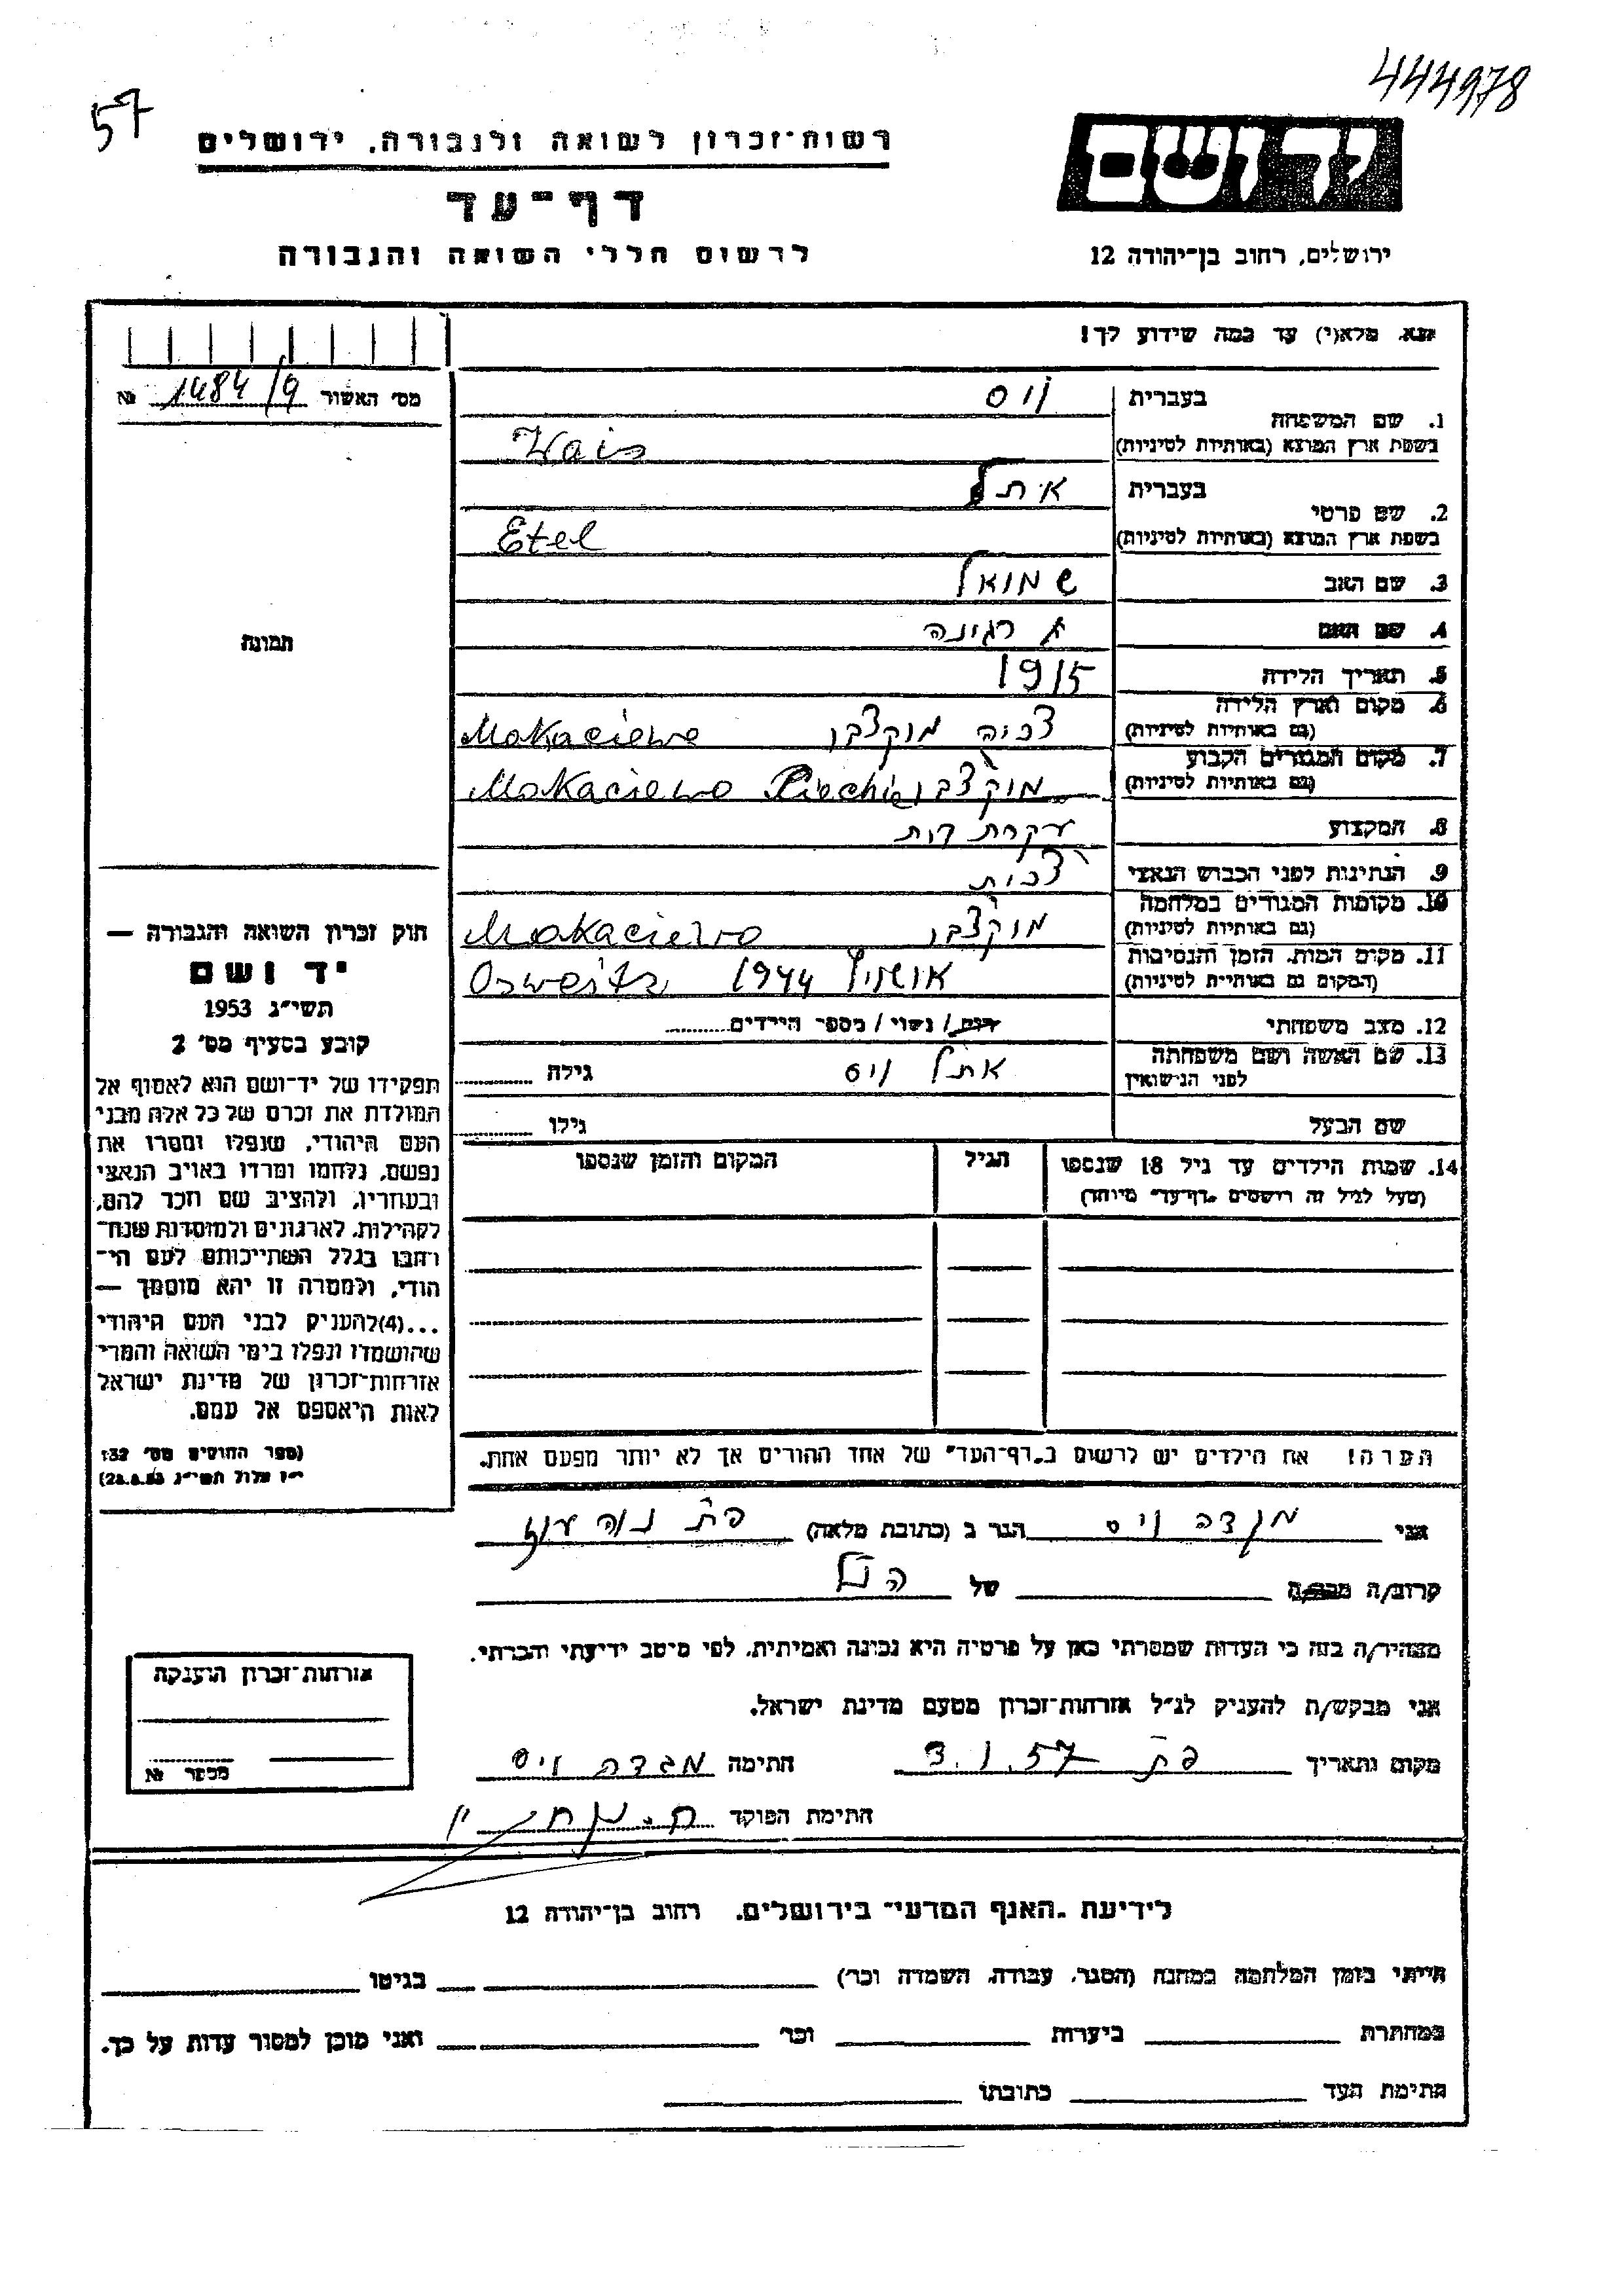 444978
57
יד ושם
רשות־זכרון לשואה ולגבורה, ירושלים
דף־עד
לרשום חללי השואה והגבורה
ירושלים, רחוב בן־יהודה 12
נא מלא(י) עד כמה שידוע לך!
מס' האשור 1484/9 №
1. שם המשפחה
בעברית וייס
בשפת ארץ המוצא (באותיות לטיניות) Wais
2. שם פרטי
בעברית איתל
בשפת ארץ המוצא (באותיות לטיניות) Etel
3. שם האב שמואל
4. שם האם רגינה
5. תאריך הלידה 1915
6. מקום וארץ הלידה
(גם באותיות לטיניות) צ'כיה מוקצ'בו Makaciewo
7. מקום המגורים הקבוע
(גם באותיות לטיניות) מוקצ'בו Makaciewo
8. המקצוע עקרת בית
9. הנתינות לפני הכבוש הנאצי צ'כית
10. מקומות המגורים במלחמה
(גם באותיות לטיניות) מוקצ'בו Makaciewo
11. מקום המות, הזמן והנסיבות
(המקום גם באותיות לטיניות) אושויץ 1944 Osweitz
12. מצב משפחתי רווק / נשוי / מספר הילדים
13. שם האשה ושם משפחתה
לפני הנישואין אתל וייס גילה
שם הבעל גילו
14. שמות הילדים עד גיל 18 שנספו הגיל המקום והזמן שנספו
(מעל לגיל זה רושמים "דף־עד" מיוחד)
הערה! את הילדים יש לרשום ב"דף־העד" של אחד ההורים אך לא יותר מפעם אחת.
תמונה
חוק זכרון השואה והגבורה —
יד ושם
תשי"ג 1953
קובע בסעיף מס' 2
תפקידו של יד־ושם הוא לאסוף אל
המולדת את זכרם של כל אלה מבני
העם היהודי, שנפלו ומסרו את
נפשם, נלחמו ומרדו באויב הנאצי
ובעוזריו, ולהציב שם וזכר להם,
לקהילות, לארגונים ולמוסדות שנח־
רבו בגלל השתייכותם לעם הי־
הודי, ולמטרה זו יהא מוסמך —
...(4)להעניק לבני העם היהודי
שהושמדו ונפלו בימי השואה והמרי
אזרחות־זכרון של מדינת ישראל
לאות היאספם אל עמם.
(ספר החוקים מס' 132
י"ז אלול תשי"ג 28.8.53)
אני מגדה וייס הגר ב (כתובת מלאה) פת נוה עוז
קרוב/ה מכר/ה של הנ"ל
מצהיר/ה בזה כי העדות שמסרתי כאן על פרטיה היא נכונה ואמיתית, לפי מיטב ידיעתי והכרתי.
אני מבקש/ת להעניק לנ"ל אזרחות־זכרון מטעם מדינת ישראל.
מקום ותאריך פת 3.1.57 חתימה מגדה וייס
חתימת הפוקד
אזרחות־זכרון הוענקה
מספר №
לידיעת "האגף המדעי" בירושלים, רחוב בן־יהודה 12
הייתי בזמן המלחמה במחנה (הסגר, עבודה, השמדה וכו') בגיטו
במחתרת ביערות וכו' ואני מוכן למסור עדות על כך.
חתימת העד כתובתו